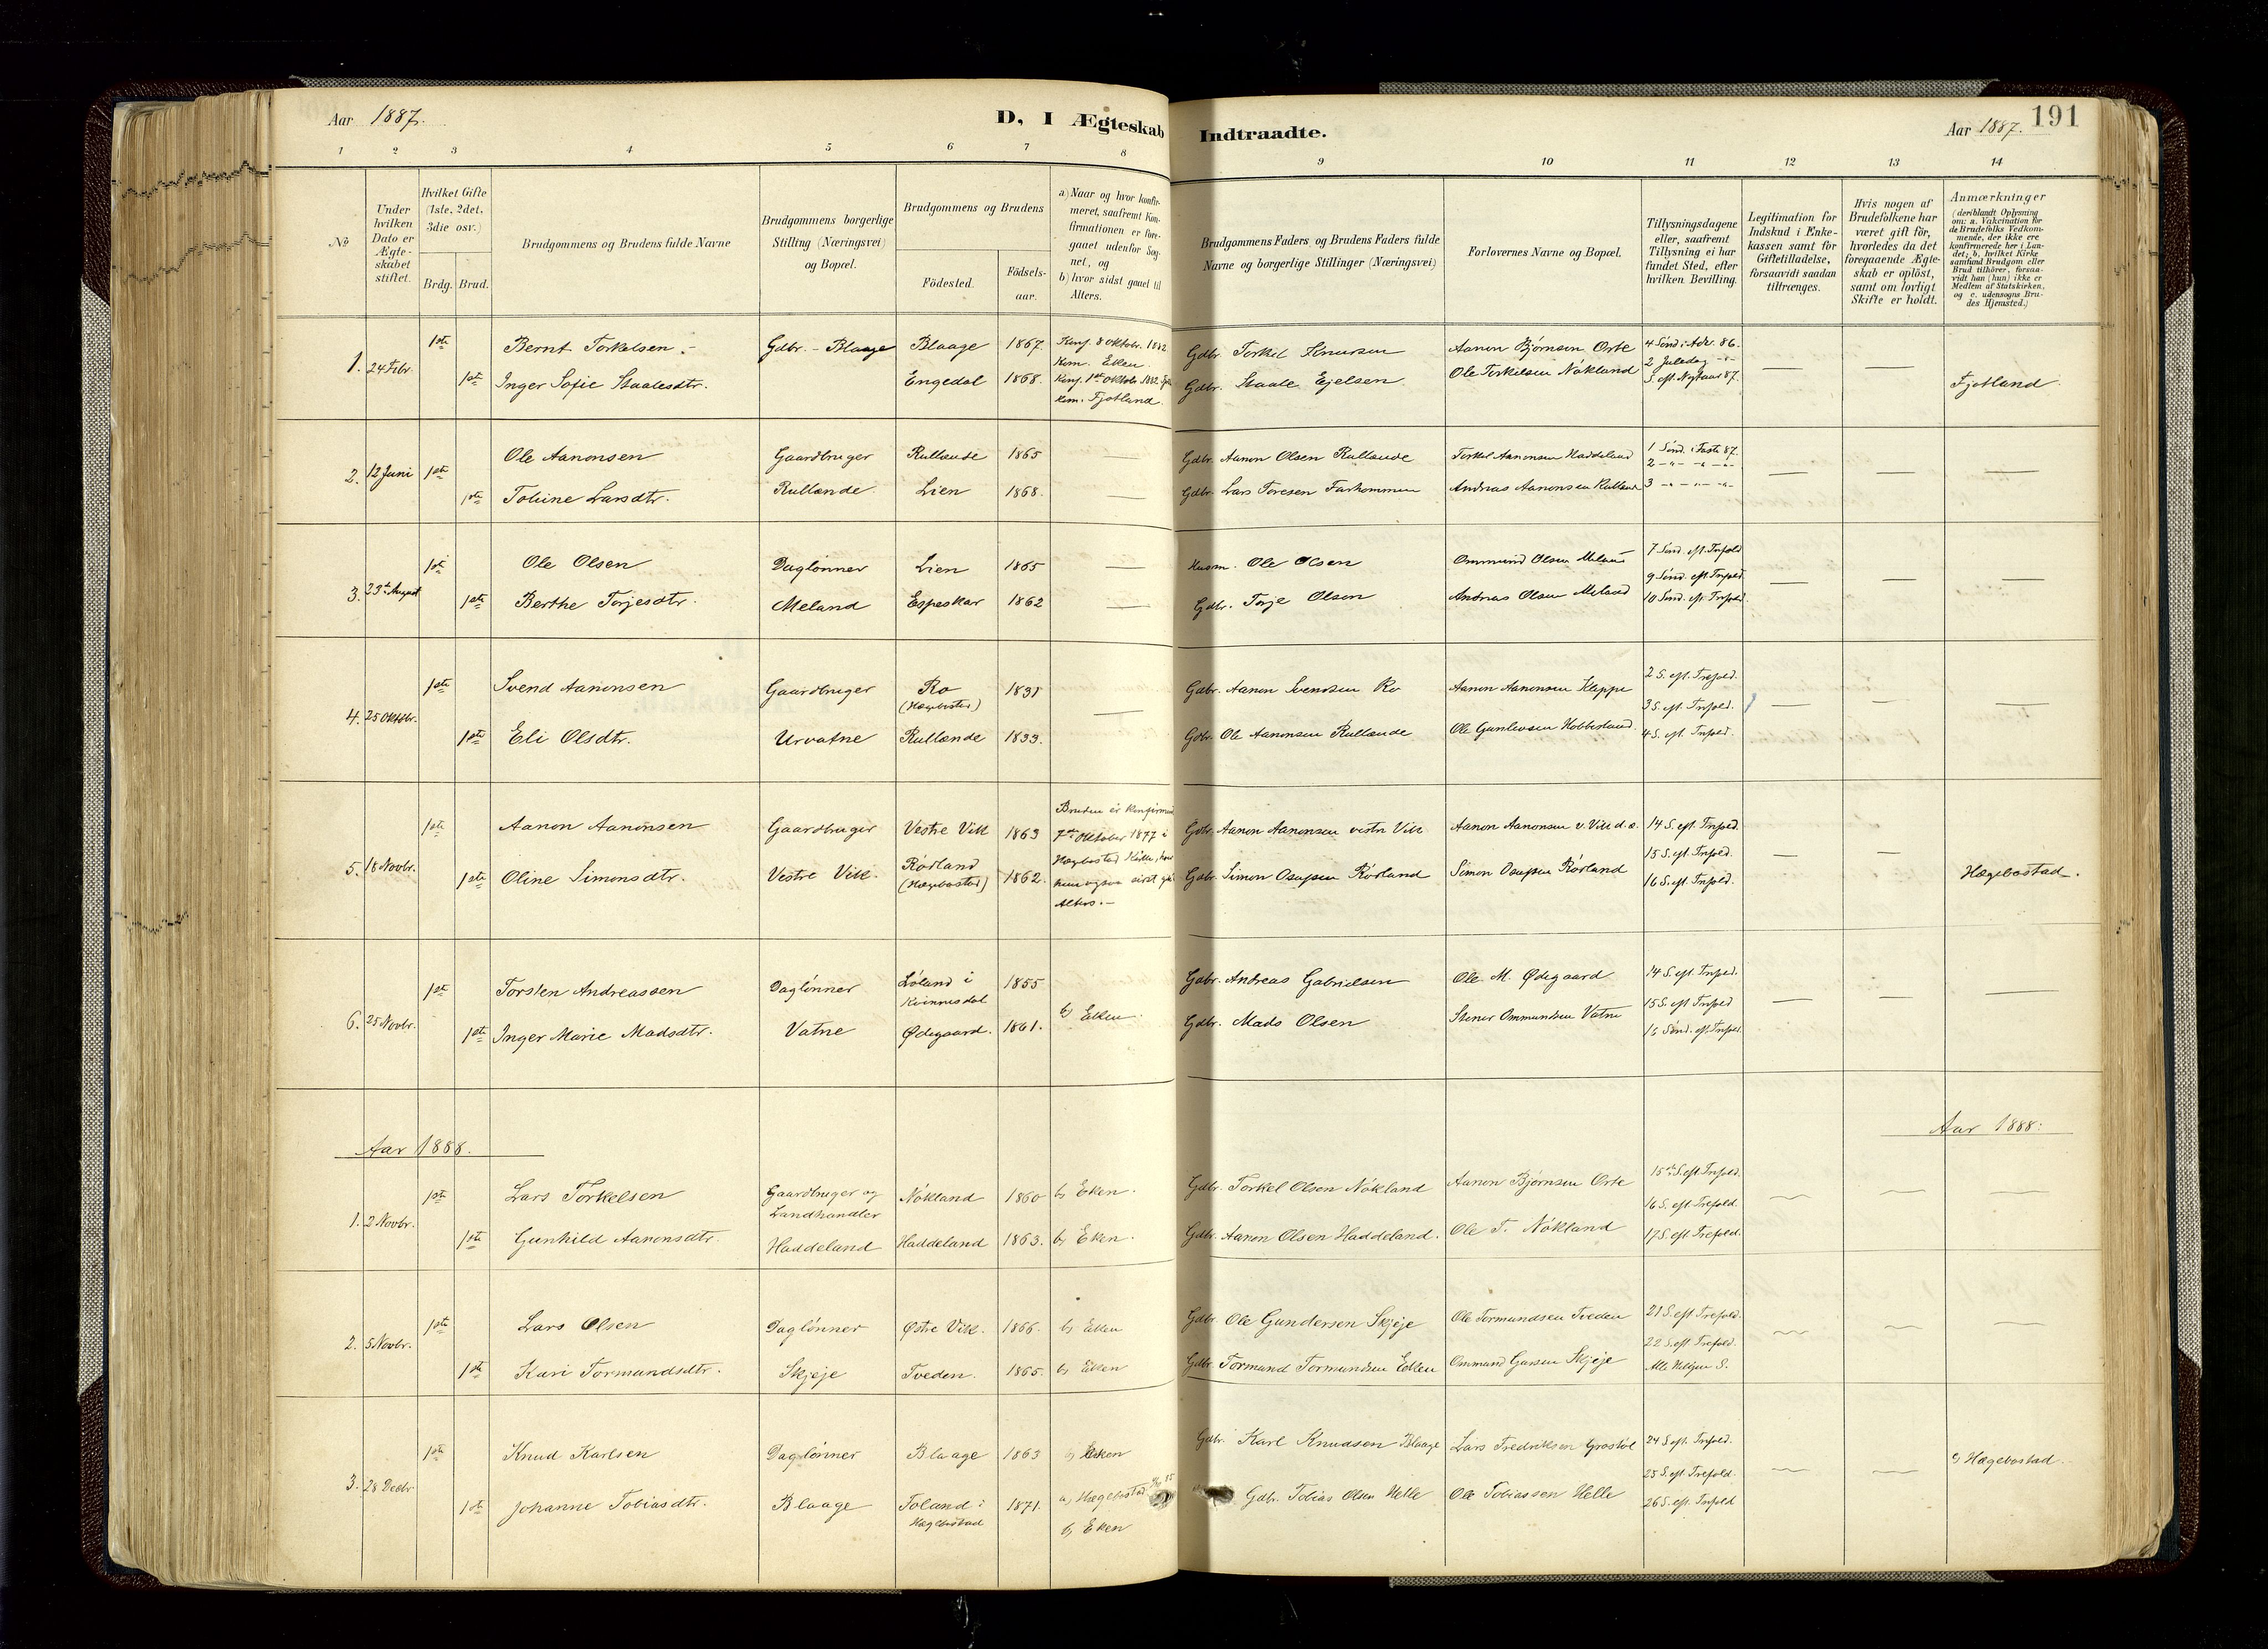 Aar 1887.
D, I Ægteskab Indtraadte.
Aar 1887.
191
1 2 3 4 5 6 7 8 9 10 11 12 13 14
No
Under hvilken Dato er Ægteskabet stiftet.
Hvilket Gifte (1ste, 2det, 3die osv.)
Brdg. Brud.
Brudgommens og Brudens fulde Navne
Brudgommens borgerlige Stilling (Næringsvei) og Bopæl.
Brudgommens og Brudens
Födested.
Födsels-aar.
a) Naar og hvor konfirmeret, saafremt Konfirmationen er foregaaet udenfor Sognet, og b) hvor sidst gaaet til Alters.
Brudgommens Faders og Brudens Faders fulde Navne og borgerlige Stillinger (Næringsvei)
Forlovernes Navne og Bopæl.
Tillysningsdagene eller, saafremt Tillysning ei har fundet Sted, efter hvilken Bevilling.
Legitimation for Indskud i Enkekassen samt for Giftetilladelse, forsaavidt saadan tiltrænges.
Hvis nogen af Brudefolkene har været gift för, hvorledes da det foregaaende Ægteskab er oplöst, samt om lovligt Skifte er holdt.
Anmærkninger (deriblandt Oplysning om: a. Vakcination for de Brudefolks Vedkommende, der ikke ere konfirmerede her i Landet; b. hvilket Kirkesamfund Brudgom eller Brud tilhörer, forsaavidt han (hun) ikke er Medlem af Statskirken, og c. udensogns Brudes Hjemsted.)
1. 24 Febr. 1ste Bernt Torkelsen. Gdbr. - Blaage Blaage 1867. Konf. 8 Oktobr. 1882 Kom. Eiken Gdbr. Torkel Knutsen Aanon Bjørnsen Orte 4 Sönd. i Adv. 86.
2 Juledag
1ste Inger Sofie Staalesdtr. Engedal 1868. Konf. 1ste Oktobr. 1882. Kom. Fjotland. Gdbr. Staale Ejelsen Ole Torkelsen Nökland S. eft. Nytaar 87. — — Fjotland
2. 12 Juni 1ste Ole Aanonsen Gaardbruger Rullande 1865 — Gdbr. Aanon Olsen Rullande Torkel Aanonsen Haddeland 1 Sönd. i Faste 87.
2 -"- -"- -"-
1ste Tobine Larsdtr. Rullande Lien 1868. — Gdbr. Lars Toresen Andreas Aanonsen Rullande 3 -"- -"- -"- — — —
3. 23de August 1ste Ole Olsen Daglönner Lien 1865 — Husm. Ole Olsen Ommund Olsen Meland 7 Sönd. eft. Trefold.
9 Sönd. eft. Trefold.
1ste Berthe Torjesdtr. Meland Espeskar 1862 — Gdbr. Torje Olsen Andreas Olsen Meland 10 Sönd. eft. Trefold. — — —
4. 25 Oktobr. 1ste Svend Aanonsen Gaardbruger Ro (Hægebostad) Gdbr. Aanon Svendsen Ro Aanon Aanonsen Kleppe 2 S. eft. Trefold.
3 S. eft. Trefold.
1ste Eli Olsdtr. Urvatne Rullande — Gdbr. Ole Aanonsen Rullande Ole Gunleiksen 4 S. eft. Trefold. — — —
5. 18 Novbr. 1ste Aanon Aanonsen Gaardbruger Vestre Vik 1863 Bruden er konfirmeret 7de Oktober 1877 i Hægebostad Kirke, hvor hun ogsaa sidst gik Alters.- Gdbr. Aanon Aanonsen vestre Vik Aanon Aanonsen v. Vik d. æ. 14 S. eft. Trefold.
15 S. eft. Trefold.
1ste Oline Simonsdtr. Vestre Vik. Rörland (Hægebostad) 1862. Gdbr. Simon Osufsen Rörland Simon Osufsen Rörland 16 S. eft. Trefold. — — Hægebostad.
6. 25 Novbr. 1ste Torsten Andreassen Daglönner Löland i Kvinnesdal 1855 Gdbr. Andreas Gabrielsen Ole M. Ødegaard 14 S. eft. Trefold.
15 S. eft. Trefold
1ste Inger Marie Madsdtr. Vatne Ødegaard. 1861. b) Eiken. Gdbr. Mads Olsen Stener Ommundsen Vatne 16 Sönd. eft. Trefold. — — —
Aar 1888.
Aar 1888.
1. 2 Novbr. 1ste Lars Torkelsen Gaardbruger og Landhandler Nökland 1860 b) Eken. Gdbr. Torkel Olsen Nökland Aanon Bjørnsen Orte 15de S. eft. Trefold.
16 S. eft. Trefold.
1ste Gunhild Aanonsdtr. Haddeland Haddeland 1863. b) Eken. Gdbr. Aanon Olsen Haddeland. Ole T. Nökland 17 S. eft. Trefold. — — —
2. 5 Novbr. 1ste Lars Olsen Daglönner Østre Vik. 1866. b) Eiken Gdbr. Ole Gundersen Skjeje Ole Tormundsen Tveden 21 S. eft. Trefold.
22 S. eft. Trefold.
1ste Kari Tormundsdtr. Skjeje Tveden. 1865. b) Eiken Gdbr. Tormund Tormundsen Eiken Ommund Skjeje Alle Helgen S. — — —
3. 28 Decbr. 1ste Knud Karlsen Daglönner Blaage 1863 b) Eiken Gdbr. Karl Knudsen Blaage Lars Fredriksen 24 S. eft. Trefold.
25 S. eft. Trefold.
1ste Johanne Tobiasdtr. Blaage Toland i Hægebostad 1871. a) Hægebostad b) Eken Gdbr. Tobias Olsen Helle Ole Tobiassen Helle 26 S. eft. Trefold — — c) Hægebostad.